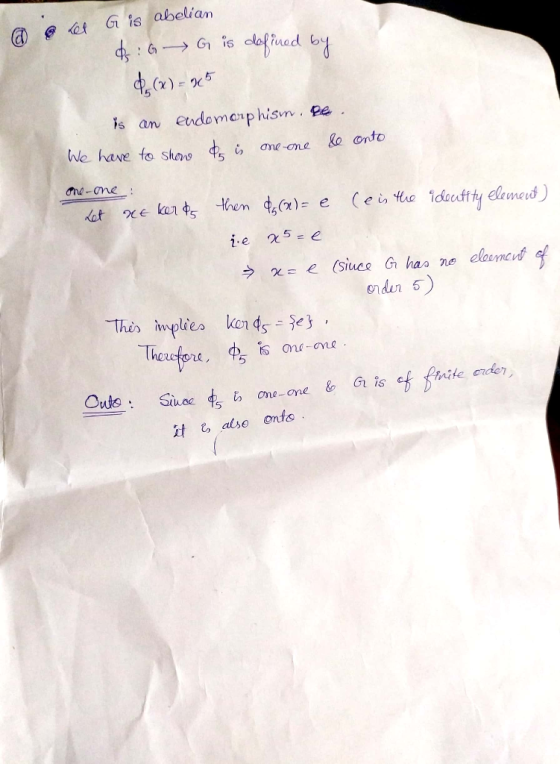 (d) Let G is abelian
ϕ₅ : G ⟶ G is defined by
ϕ₅(x) = x⁵
is an endomorphism.
We have to show ϕ₅ is one-one & onto
one-one :
Let x ∈ ker ϕ₅ then ϕ₅(x) = e (e is the identity element)
i.e x⁵ = e
⇒ x = e (since G has no element of
order 5)
This implies ker ϕ₅ = {e}.
Therefore, ϕ₅ is one-one.
Onto : Since ϕ₅ is one-one & G is of finite order,
it is also onto.